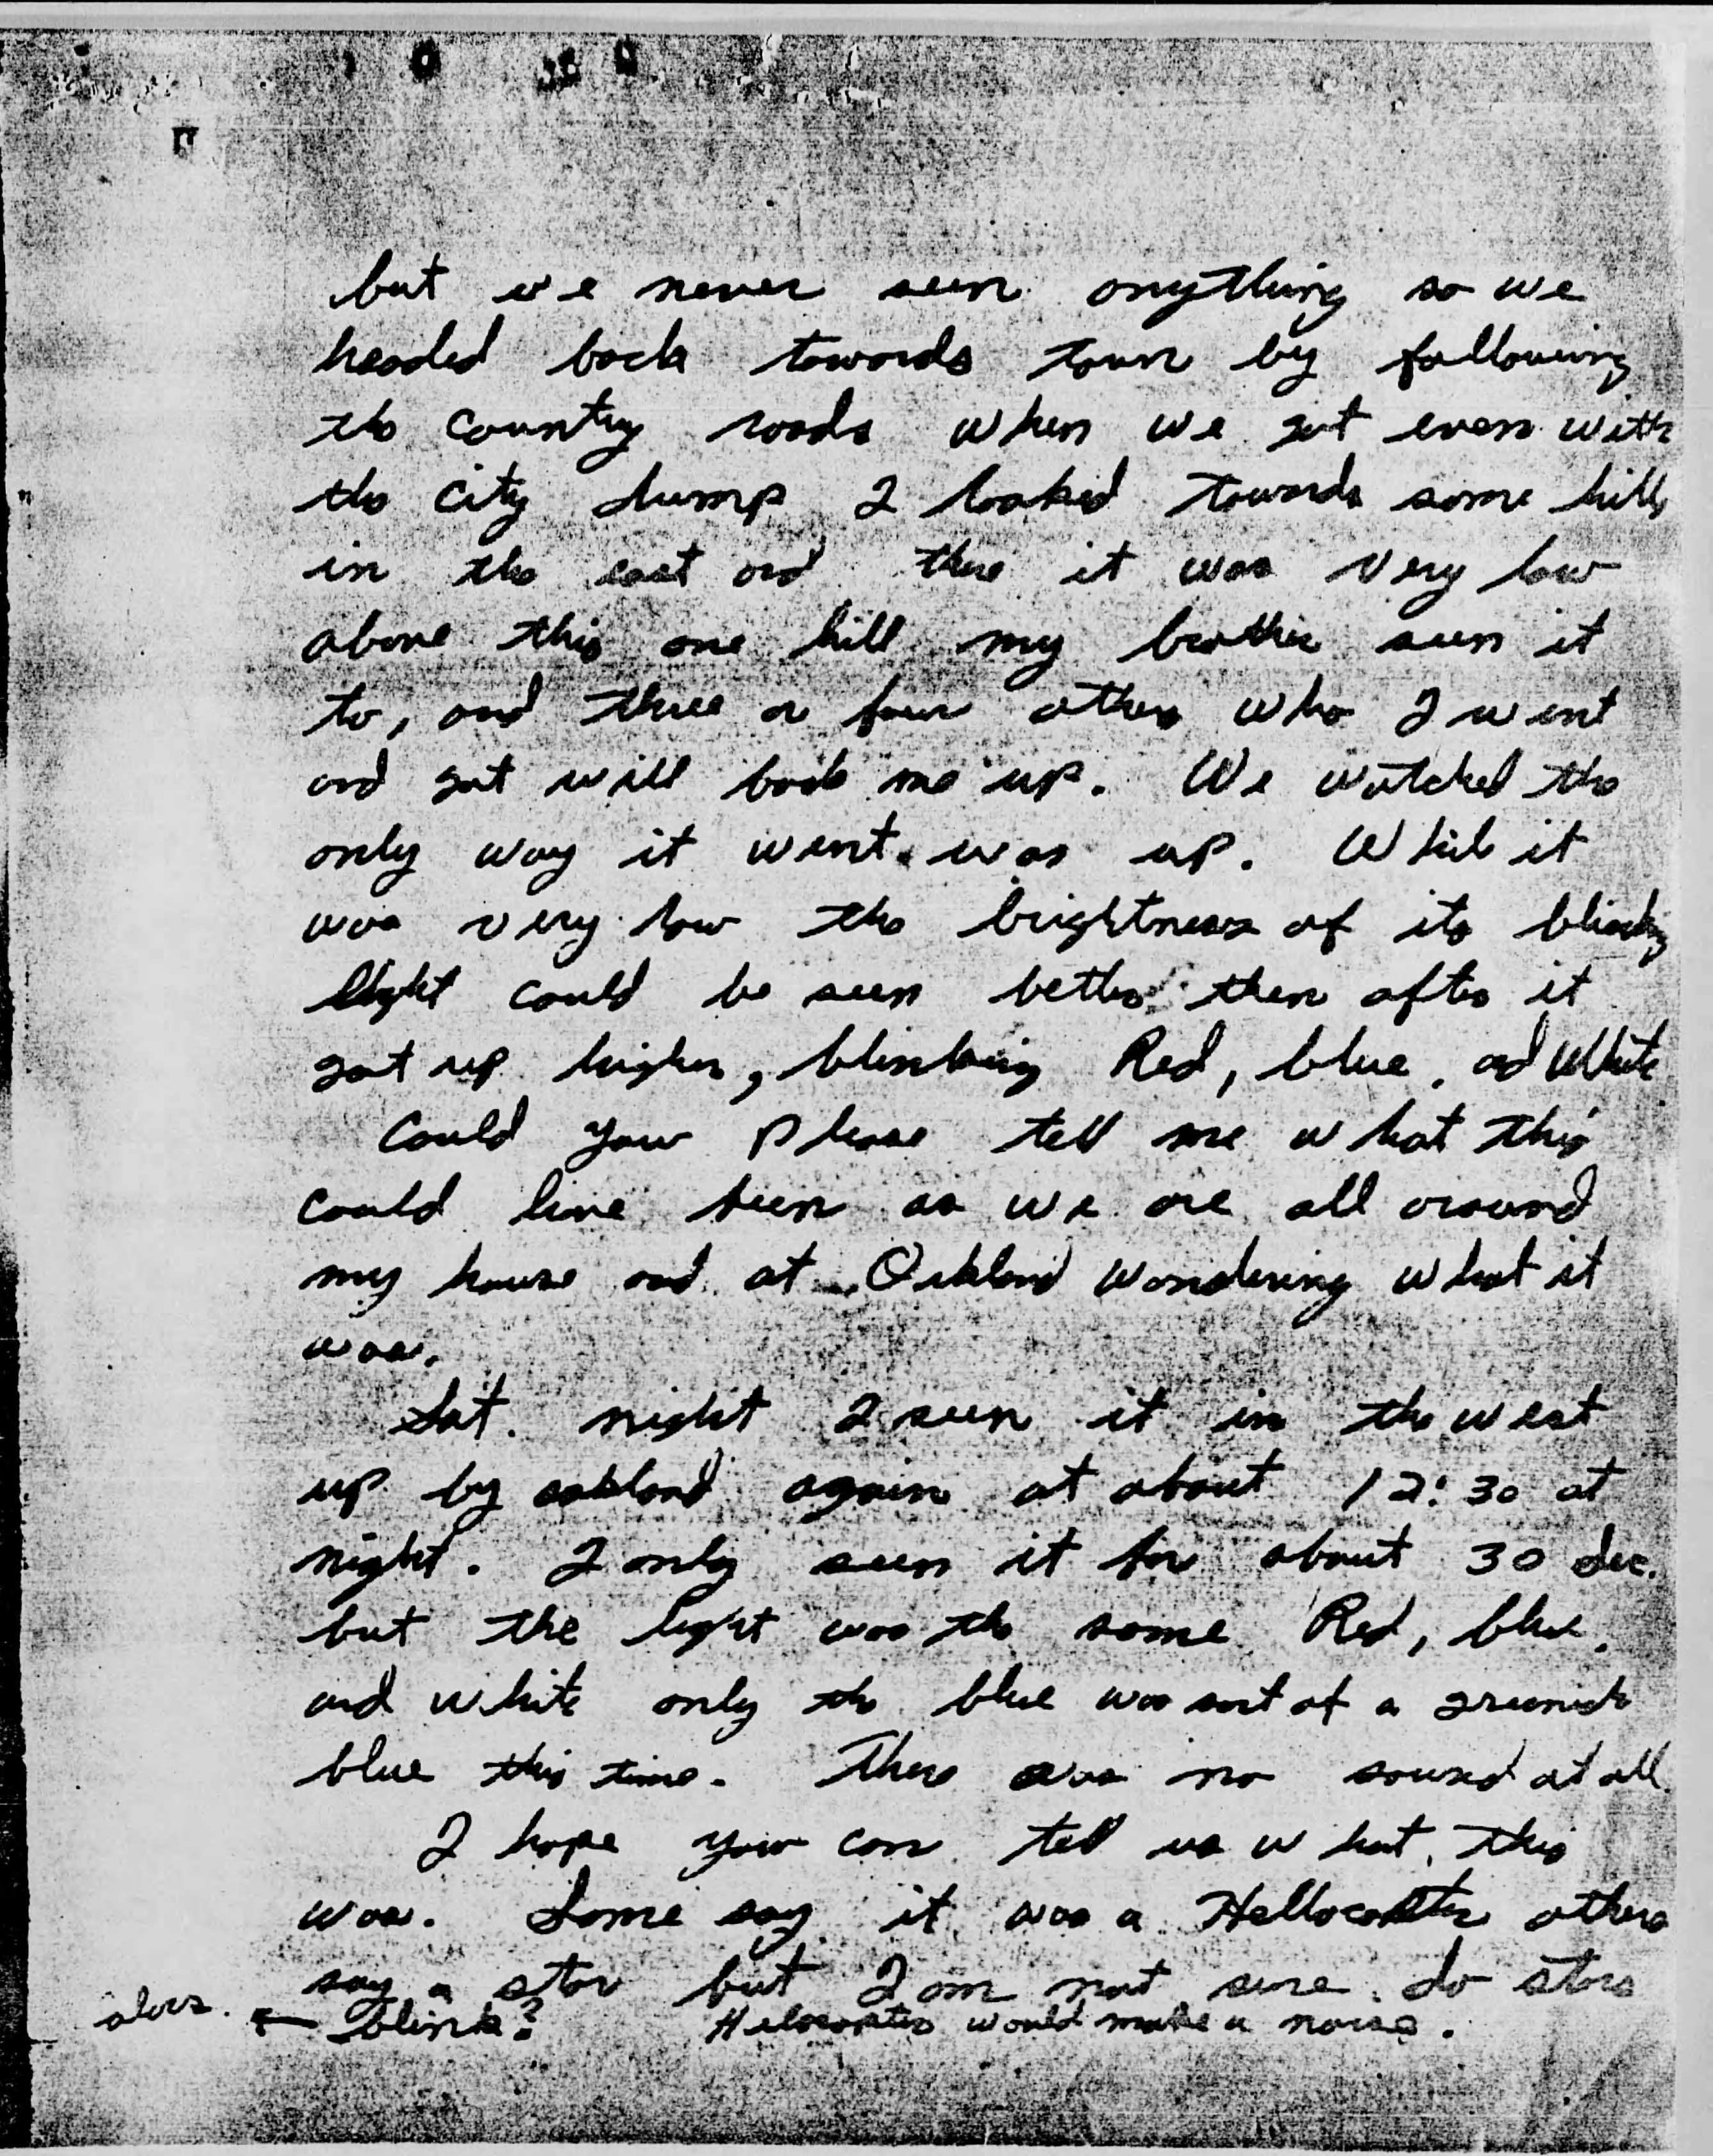 but we never seen anything so we
headed back towards town by following
the country roads when we got even with
the city dump I looked towards some hills
in the east and there it was very low
above this one hill my brother seen it
to, and three or four others who I went
and got will back me up. We watched the
only way it went was up. While it
was very low the brightness of its blinking
light could be seen better then after it
got up higher, blinking Red, blue, and White
Could you please tell me what this
could have been as we are all around
my house and at Oakland wondering what it
was.
Sat. night I seen it in the west
up by oakland again at about 12:30 at
night. I only seen it for about 30 sec.
but the light was the same Red, blue,
and white only the blue was sort of a greenish
blue this time. There was no sound at all.
I hope you can tell us what this
was. Some say it was a Hellocopter others
say a star but I am not sure. do stars
← blink? Helocopter would make a noise.